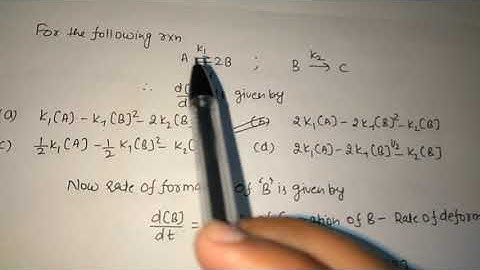 For the following rxn
A k₁ 2B ; B k₂→ C
∴ d[ is given by
(a) k₁[A] - k₋₁[B]² - 2k₂[B] (b) 2k₁[A] - 2k₋₁[B]² - k₂[B]
(c) ½k₁[A] - ½k₋₁[B]² - k₂[ (d) 2k₁[A] - 2k₋₁[B]^½ - k₂[B]
Now Rate of form of 'B' is given by
d[B]/dt = of B - Rate of deform